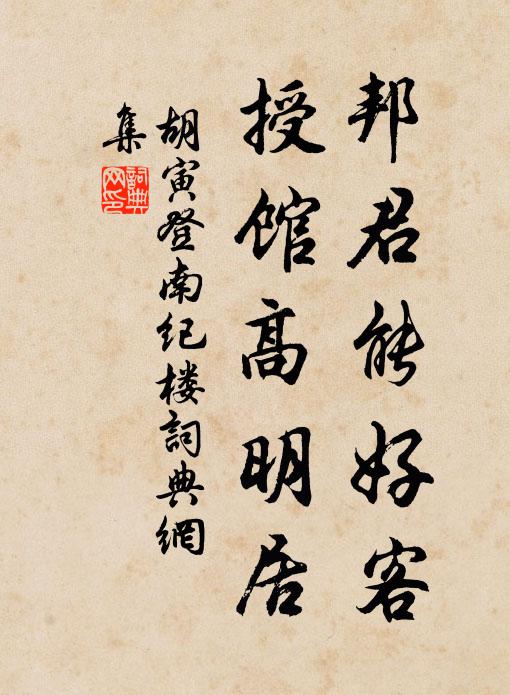 邦君能好客
授馆高明居
胡寅登南纪楼詞典網
集
詞典網印